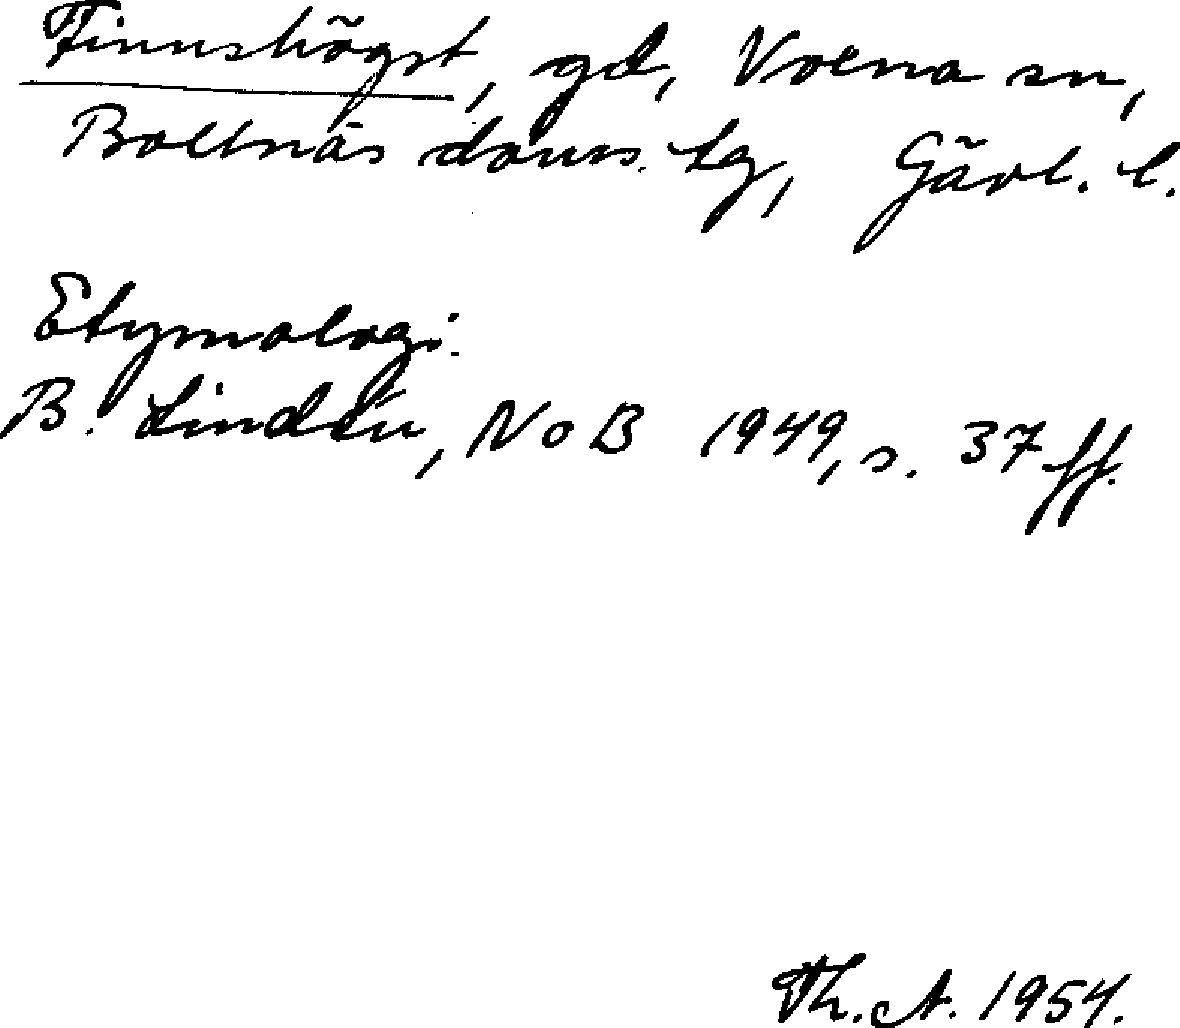 Finnshögst, gd, Voxna sn,
Bollnäs doms. tg, Gävl. l.
Etymologi.
B. Lindén, NoB 1949, s. 37 ff.
Th. A. 1954.